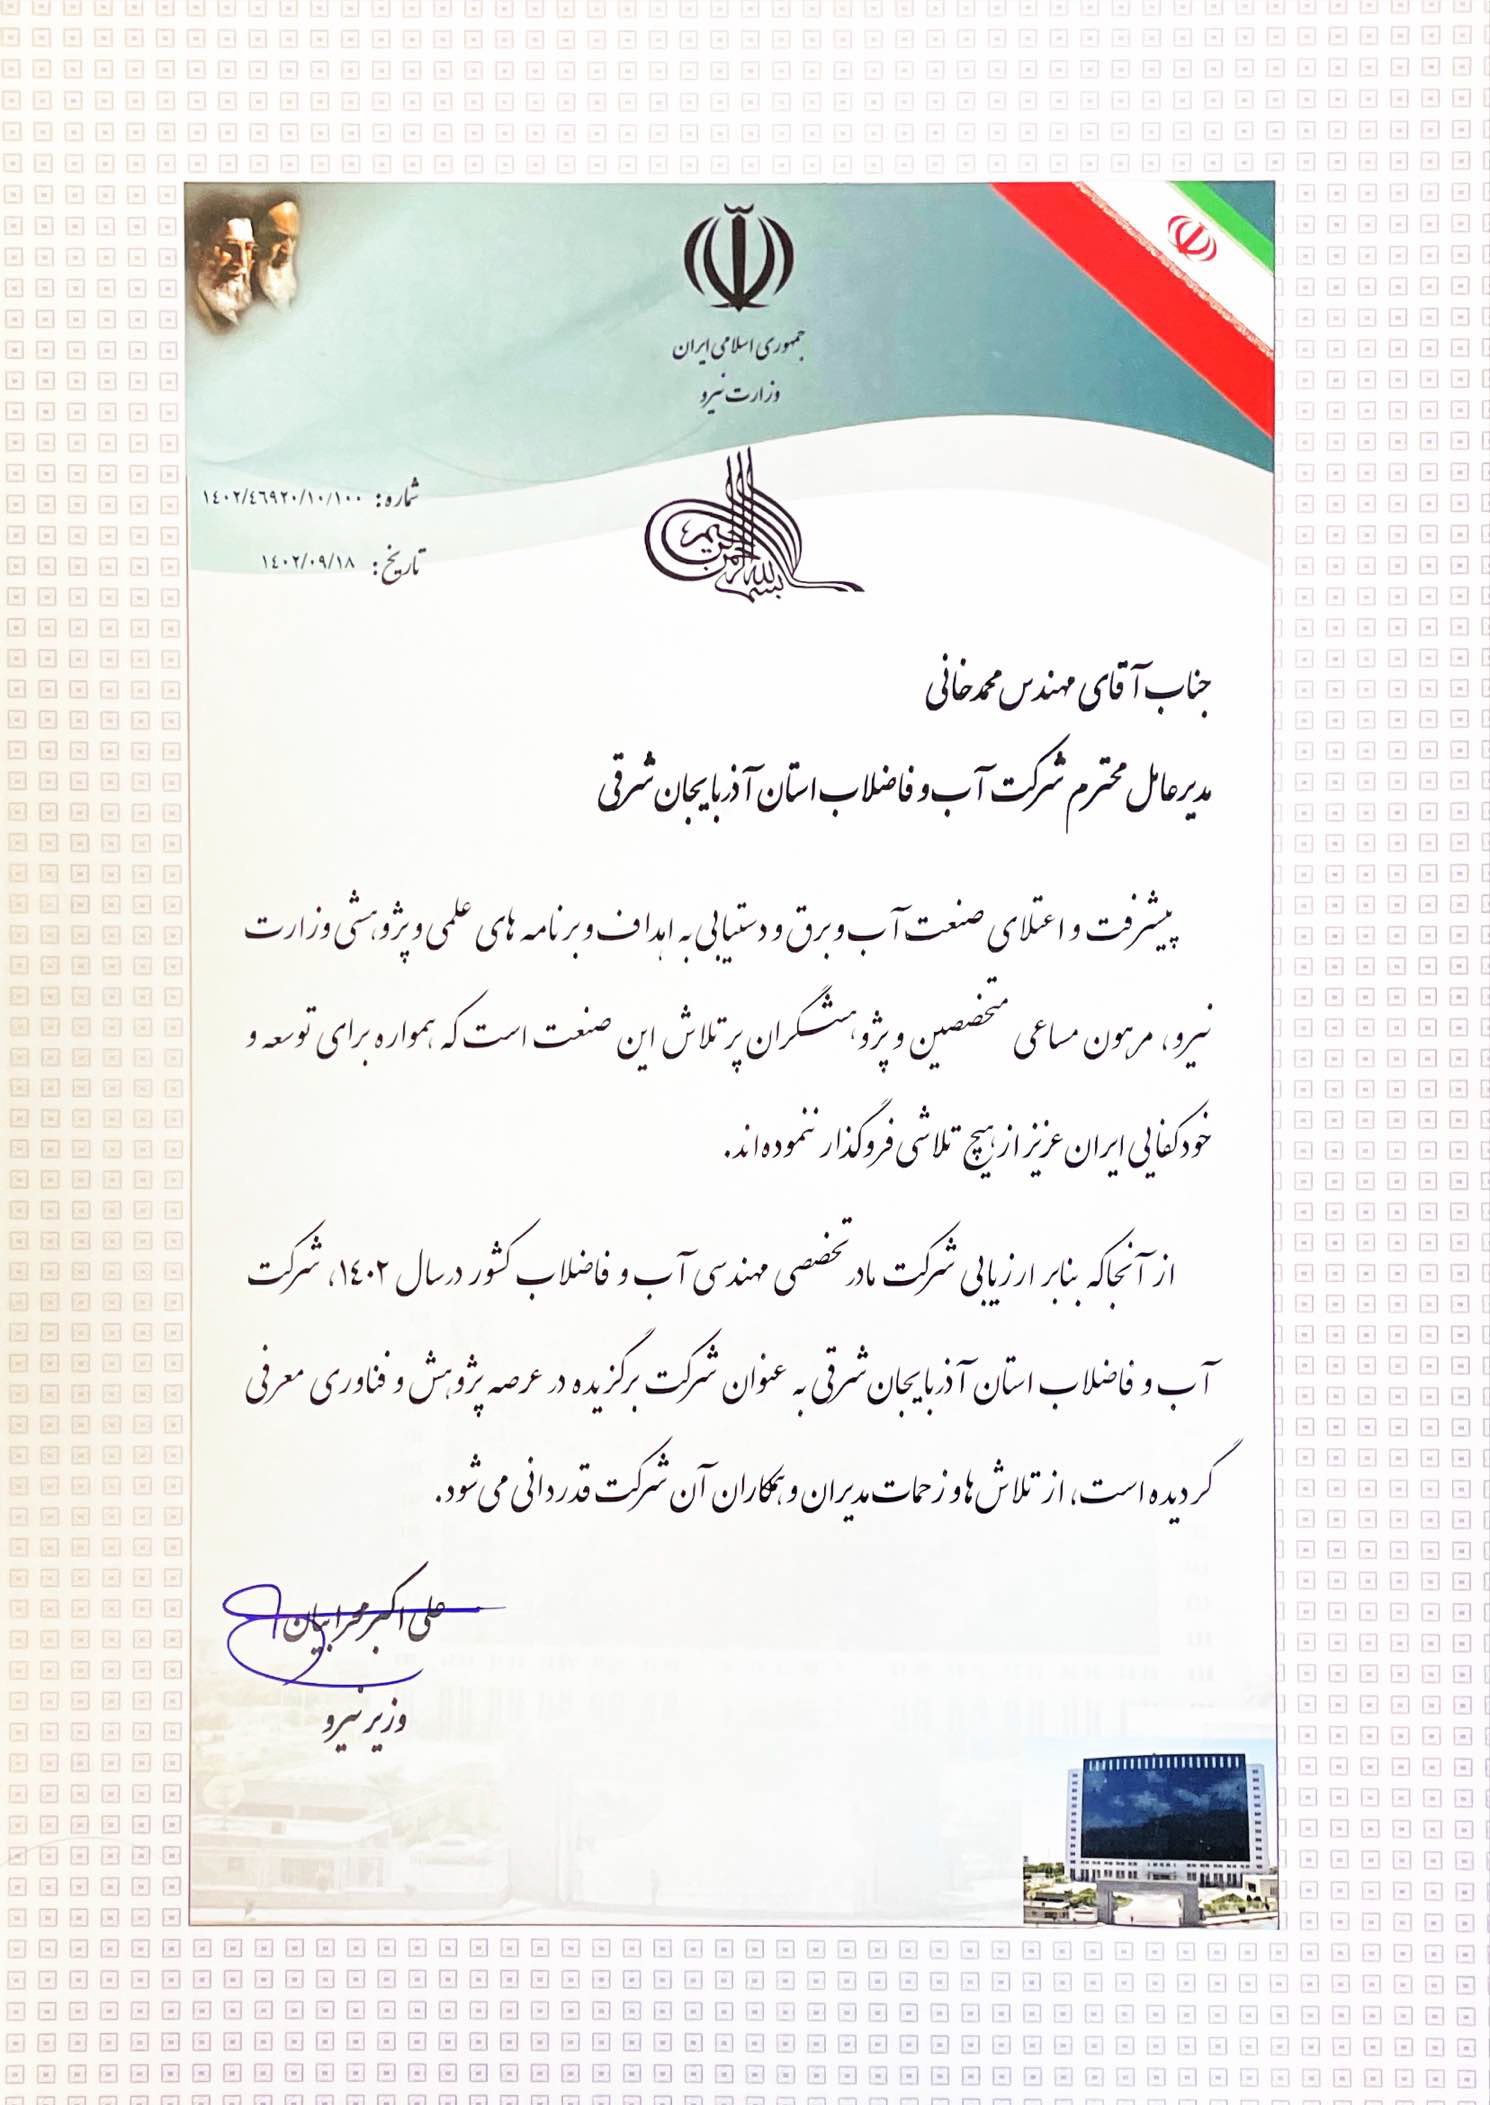 جمهوری اسلامی ایران
وزارت نیرو
شماره: ۱۴۰۲/۴۶۹۲۰/۱۰/۱۰۰
تاریخ: ۱۴۰۲/۰۹/۱۸
بسم الله الرحمن الرحیم
جناب آقای مهندس محمدخانی
مدیرعامل محترم شرکت آب و فاضلاب استان آذربایجان شرقی
پیشرفت و اعتلای صنعت آب و برق و دستیابی به اهداف و برنامه های علمی و پژوهشی وزارت
نیرو، مرهون مساعی متخصصین و پژوهشگران پر تلاش این صنعت است که همواره برای توسعه و
خودکفایی ایران عزیز از هیچ تلاشی فروگذار ننموده‌اند.
از آنجاکه بنابر ارزیابی شرکت مادر تخصصی مهندسی آب و فاضلاب کشور درسال ۱۴۰۲، شرکت
آب و فاضلاب استان آذربایجان شرقی به عنوان شرکت برگزیده در عرصه پژوهش و فناوری معرفی
گردیده است، از تلاش ها و زحمات مدیران و همکاران آن شرکت قدردانی می شود.
علی اکبر محرابیان
وزیر نیرو